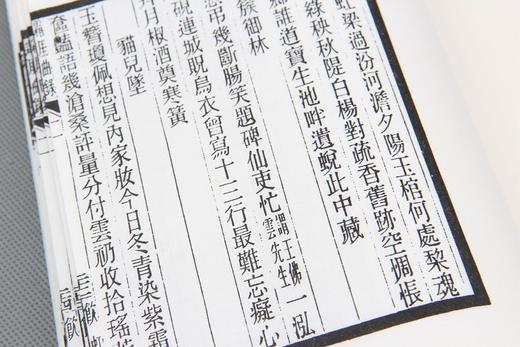 梁過汾河澹夕陽玉棺何處棃魂
秧秋隄白楊對疏香舊跡空惆悵
誰道寶生池畔遺蛻此中藏
御林
弔幾斷腸笑題碑仙吏忙謂王佛雲先生一泓
硯連城旣烏衣曾寫十三行最難忘癡心
月椒酒奠寒簧
貓兒墜
玉簪瓊佩想見內家妝今日冬青染紫霜
龕豔語幾滄桑評量分付雲礽收拾瑤